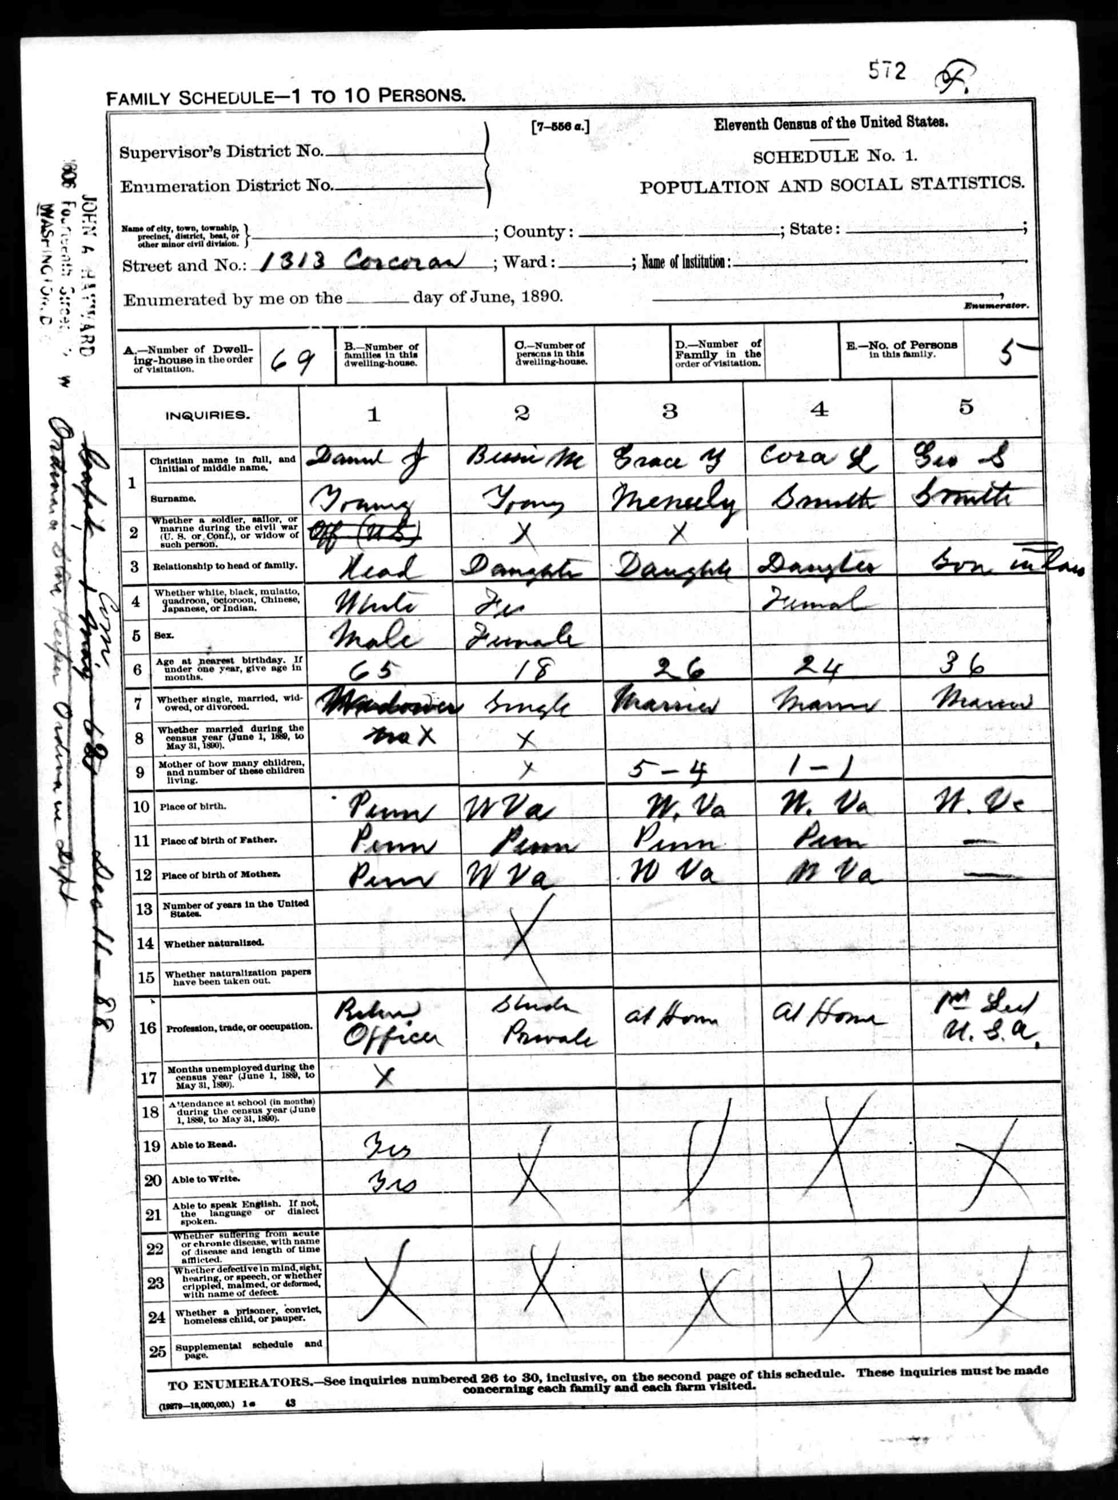 572
FAMILY SCHEDULE—1 TO 10 PERSONS.
[7—556 a.]
Eleventh Census of the United States.
Supervisor's District No.
SCHEDULE No. 1.
Enumeration District No.
POPULATION AND SOCIAL STATISTICS.
Name of city, town, township, precinct, district, beat, or other minor civil division. ; County: ; State: ;
Street and No.: 1313 Corcoran ; Ward: ; Name of Institution:
Enumerated by me on the day of June, 1890.
Enumerator.
A.—Number of Dwelling-house in the order of visitation. 69 B.—Number of families in this dwelling-house. C.—Number of persons in this dwelling-house. D.—Number of Family in the order of visitation. E.—No. of Persons in this family. 5
INQUIRIES. 1 2 3 4 5
1 Christian name in full, and initial of middle name. Daniel J Bessie M Grace Y Cora L Geo S
Surname. Young Young Meneely Smith Smith
2 Whether a soldier, sailor, or marine during the civil war (U. S. or Conf.), or widow of such person. Off (US) X X
3 Relationship to head of family. Head Daughter Daughter Daughter Son in law
4 Whether white, black, mulatto, quadroon, octoroon, Chinese, Japanese, or Indian. White Fe Femal
5 Sex. Male Female
6 Age at nearest birthday. If under one year, give age in months. 65 18 26 24 36
7 Whether single, married, widowed, or divorced. Widower Single Married Married Married
8 Whether married during the census year (June 1, 1889, to May 31, 1890). X X
9 Mother of how many children, and number of these children living. X 5-4 1-1
10 Place of birth. Penn W Va W. Va W. Va W. Va
11 Place of birth of Father. Penn Penn Penn Penn —
12 Place of birth of Mother. Penn W Va W Va W Va —
13 Number of years in the United States.
14 Whether naturalized. X
15 Whether naturalization papers have been taken out.
16 Profession, trade, or occupation. Retired Officer Private at Home At Home 1st Lieut U.S.A.
17 Months unemployed during the census year (June 1, 1889, to May 31, 1890). X
18 Attendance at school (in months) during the census year (June 1, 1889, to May 31, 1890).
19 Able to Read. Yes
20 Able to Write. Yes X X X
21 Able to speak English. If not, the language or dialect spoken.
22 Whether suffering from acute or chronic disease, with name of disease and length of time afflicted.
23 Whether defective in mind, sight, hearing, or speech, or whether crippled, maimed, or deformed, with name of defect. X X X X X
24 Whether a prisoner, convict, homeless child, or pauper.
25 Supplemental schedule and page.
TO ENUMERATORS.—See inquiries numbered 26 to 30, inclusive, on the second page of this schedule. These inquiries must be made
concerning each family and each farm visited.
(19279—18,000,000.) 43
JOHN A HAYWARD
1806 Fourteenth Street
WASHINGTON, D C